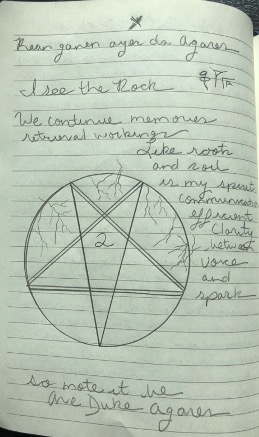 Renn ganen ayer da Agares
I see the Rock
We continue memories
retrieval workings
Like roots
and soil
is my spirit
communication
efficient
Clarity
between
voice
and
spark
2
so mote it be
Ave Duke Agares